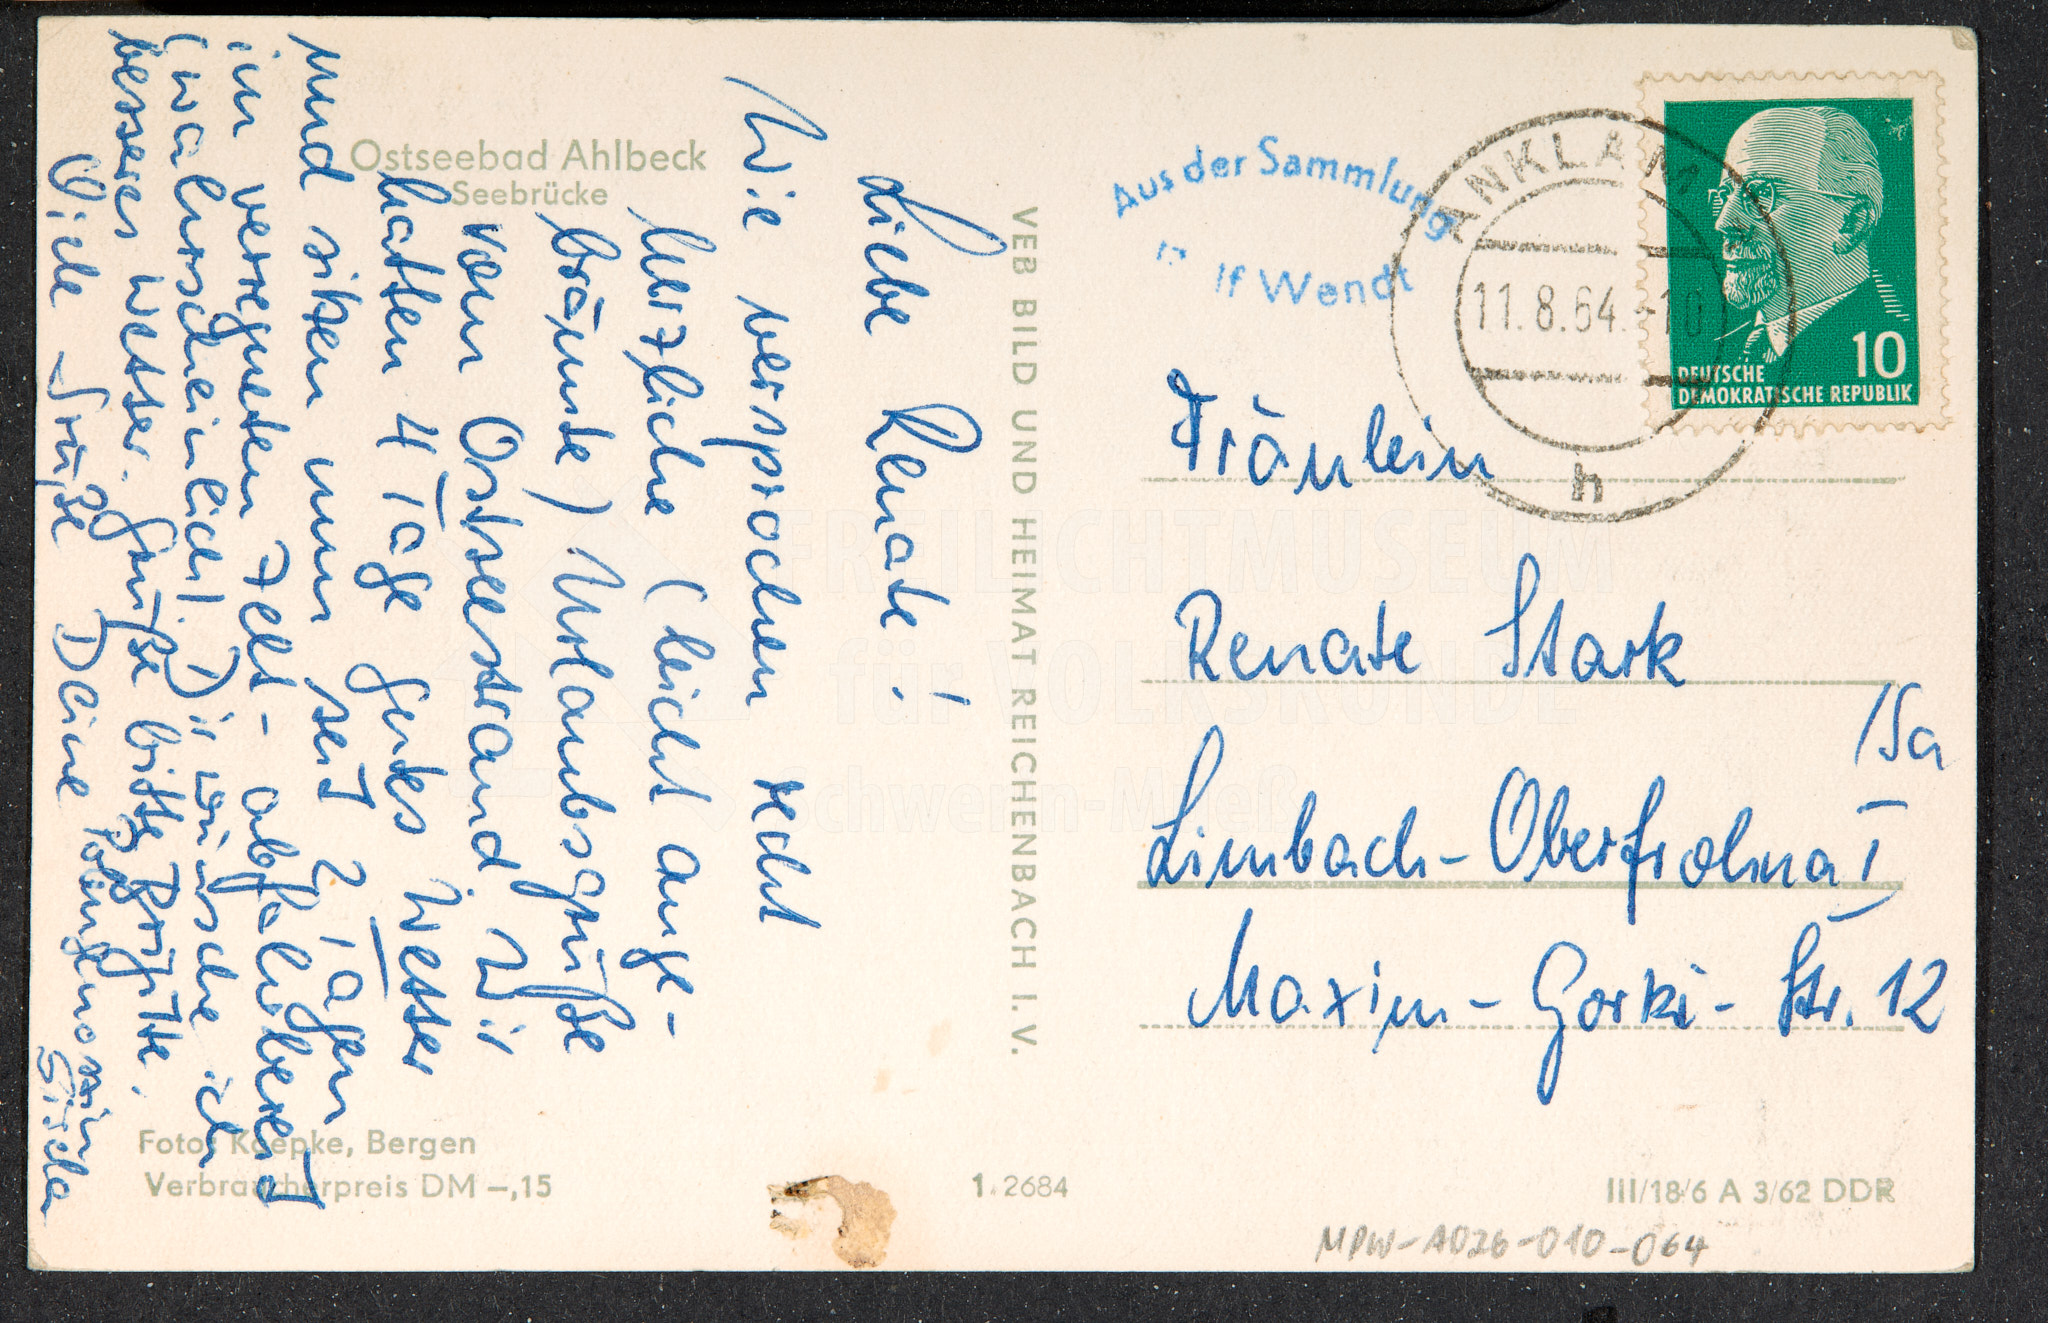 Ostseebad Ahlbeck
Seebrücke
Liebe Renate!
Wie versprochen recht
herzliche (leicht ange-
bräunte) Urlaubsgrüße
vom Ostseestrand. Wir
hatten 4 Tage gutes Wetter
und sitzen nun seit 2 Tagen
im verregneten Zelt - abfahrbereit
(wahrscheinlich). Dir wünsche ich
besseres Wetter. Grüße bitte Brigitte.
Viele Grüße Deine
Gisela
Foto: Kaepke, Bergen
Verbraucherpreis DM –,15
VEB BILD UND HEIMAT REICHENBACH I. V.
1. 2684
III/18/6 A 3/62 DDR
Aus der Sammlung
lf Wendt
ANKLAM
11.8.64.-10
h
10
DEUTSCHE
DEMOKRATISCHE REPUBLIK
Fräulein
Renate Stark
/Sa
Limbach-Oberfrohna I
Maxim-Gorki-Str. 12
MPW-A026-010-064
FREILICHTMUSEUM
für VOLKSKUNDE
Schwerin-Mueß